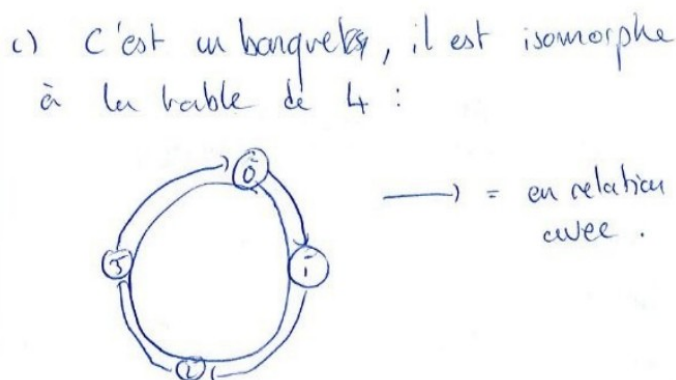 c) C'est un banquet, il est isomorphe
à la table de 4 :
0
⟶ = en relation
avec.
3
1
2